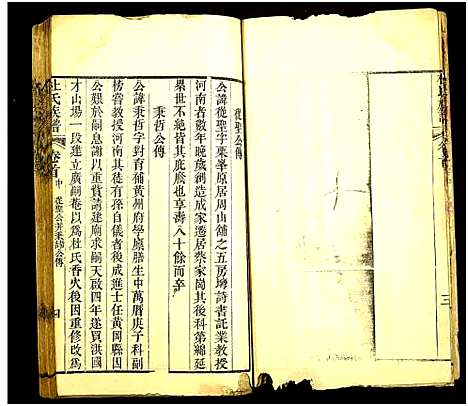 從聖公傳
公諱從聖字栗峯原居周山舖之五房塆詩書託業教授
河南者數年晚歲創造成家遷居蔡家崗其後科第綿延
累世不絶皆其庇廕也享壽八十餘而卒
秉哲公傳
公諱秉哲字對育補黄州府學廪膳生中萬曆庚子科副
榜嘗教授河南其徒有孫自儀者後成進士任黄岡縣因
公艱於嗣息謝以重貲請建廟求嗣天啟四年遂買洪國
才山場一段建立廣嗣菴以爲杜氏香火後因重修改爲
杜氏族譜
卷首中
從聖公并秉哲公傳
四
三